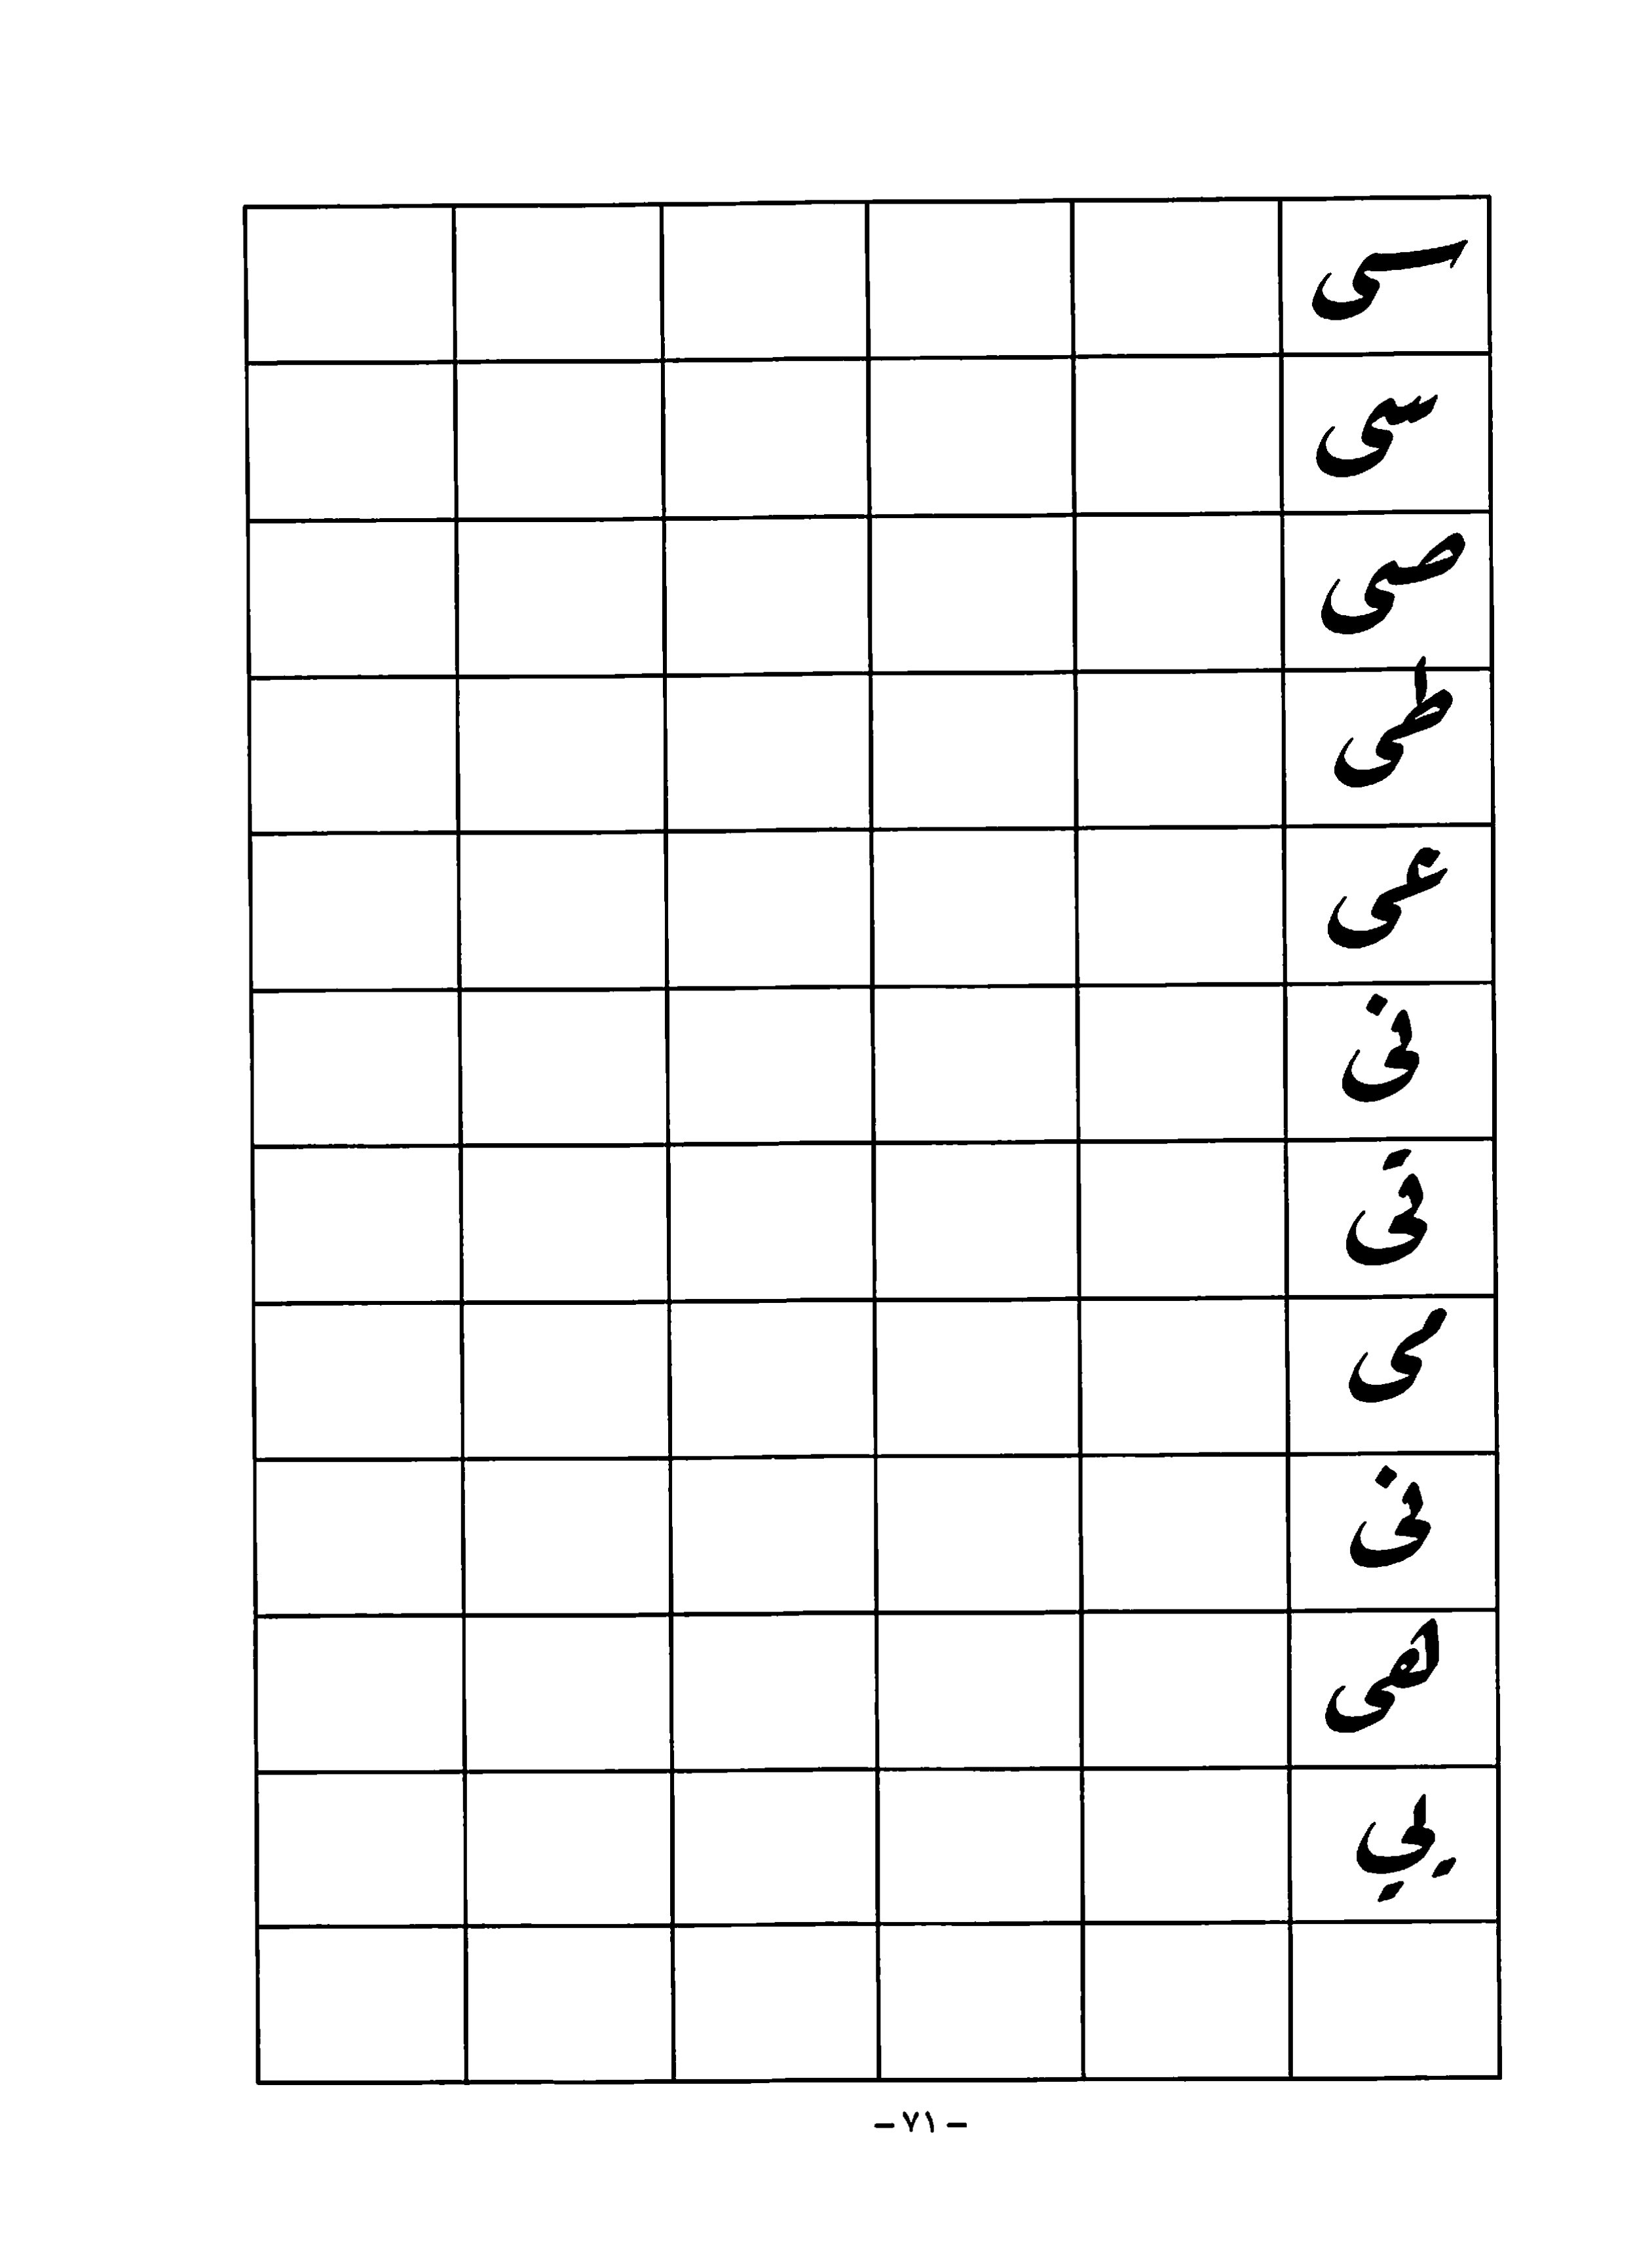 سى
سى
صى
طى
عى
فى
قى
مى
نى
لهى
يي
- ٧١ -